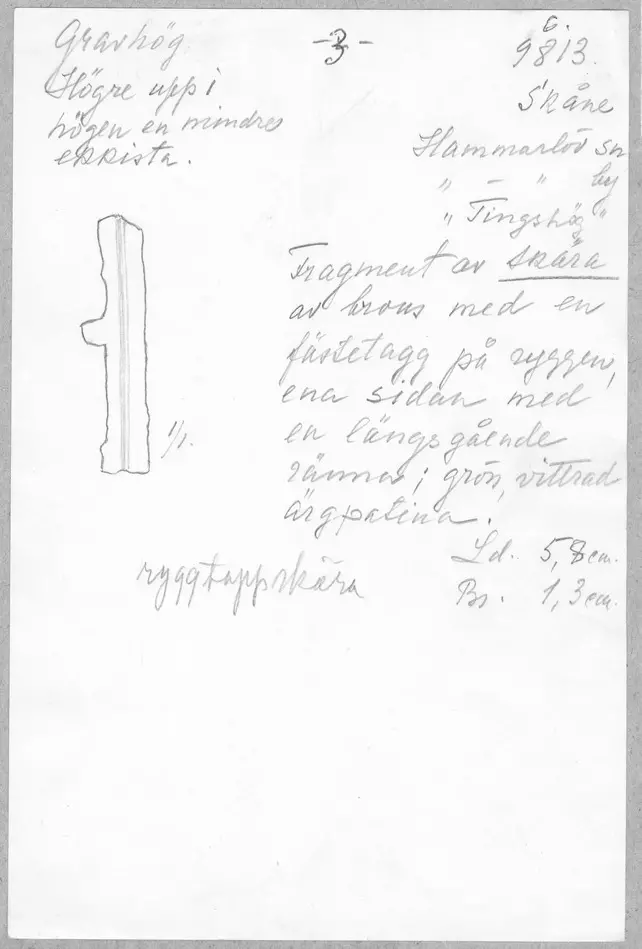 Gravhög
Högre uppi
högen en mindre
ekkista.
-3-
6.
9813.
Skåne
Hammarlöv sn
" — " by
"Tingshög"
Fragment av skära
av brons med en
fästetagg på ryggen,
ena sidan med
en längsgående
ränna; grön, vittrad
ärgpatina.
Ld. 5,8 cm.
Br. 1,3 cm.
1/1.
ryggtappskära